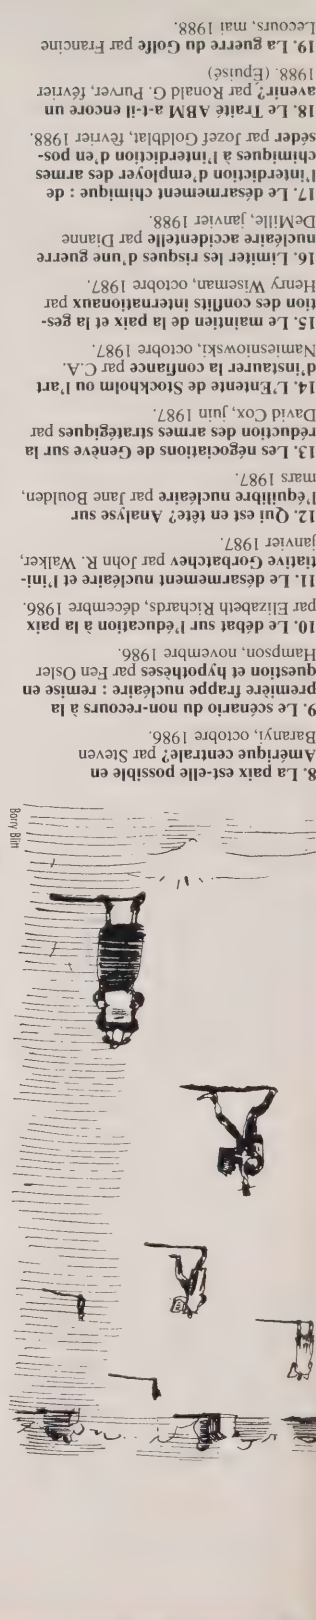 8. La paix est-elle possible en
Amérique centrale? par Steven
Baranyi, octobre 1986.
9. Le scénario du non-recours à la
première frappe nucléaire : remise en
question et hypothèses par Fen Osler
Hampson, novembre 1986.
10. Le débat sur l'éducation à la paix
par Elizabeth Richards, décembre 1986.
11. Le désarmement nucléaire et l'ini-
tiative Gorbatchev par John R. Walker,
janvier 1987.
12. Qui est en tête? Analyse sur
l'équilibre nucléaire par Jane Boulden,
mars 1987.
13. Les négociations de Genève sur la
réduction des armes stratégiques par
David Cox, juin 1987.
14. L'Entente de Stockholm ou l'art
d'instaurer la confiance par C.A.
Namiesniowski, octobre 1987.
15. Le maintien de la paix et la ges-
tion des conflits internationaux par
Henry Wiseman, octobre 1987.
16. Limiter les risques d'une guerre
nucléaire accidentelle par Dianne
DeMille, janvier 1988.
17. Le désarmement chimique : de
l'interdiction d'employer des armes
chimiques à l'interdiction d'en pos-
séder par Jozef Goldblat, février 1988.
18. Le Traité ABM a-t-il encore un
avenir? par Ronald G. Purver, février
1988. (Épuisé)
19. La guerre du Golfe par Francine
Lecours, mai 1988.
Barry Blitt